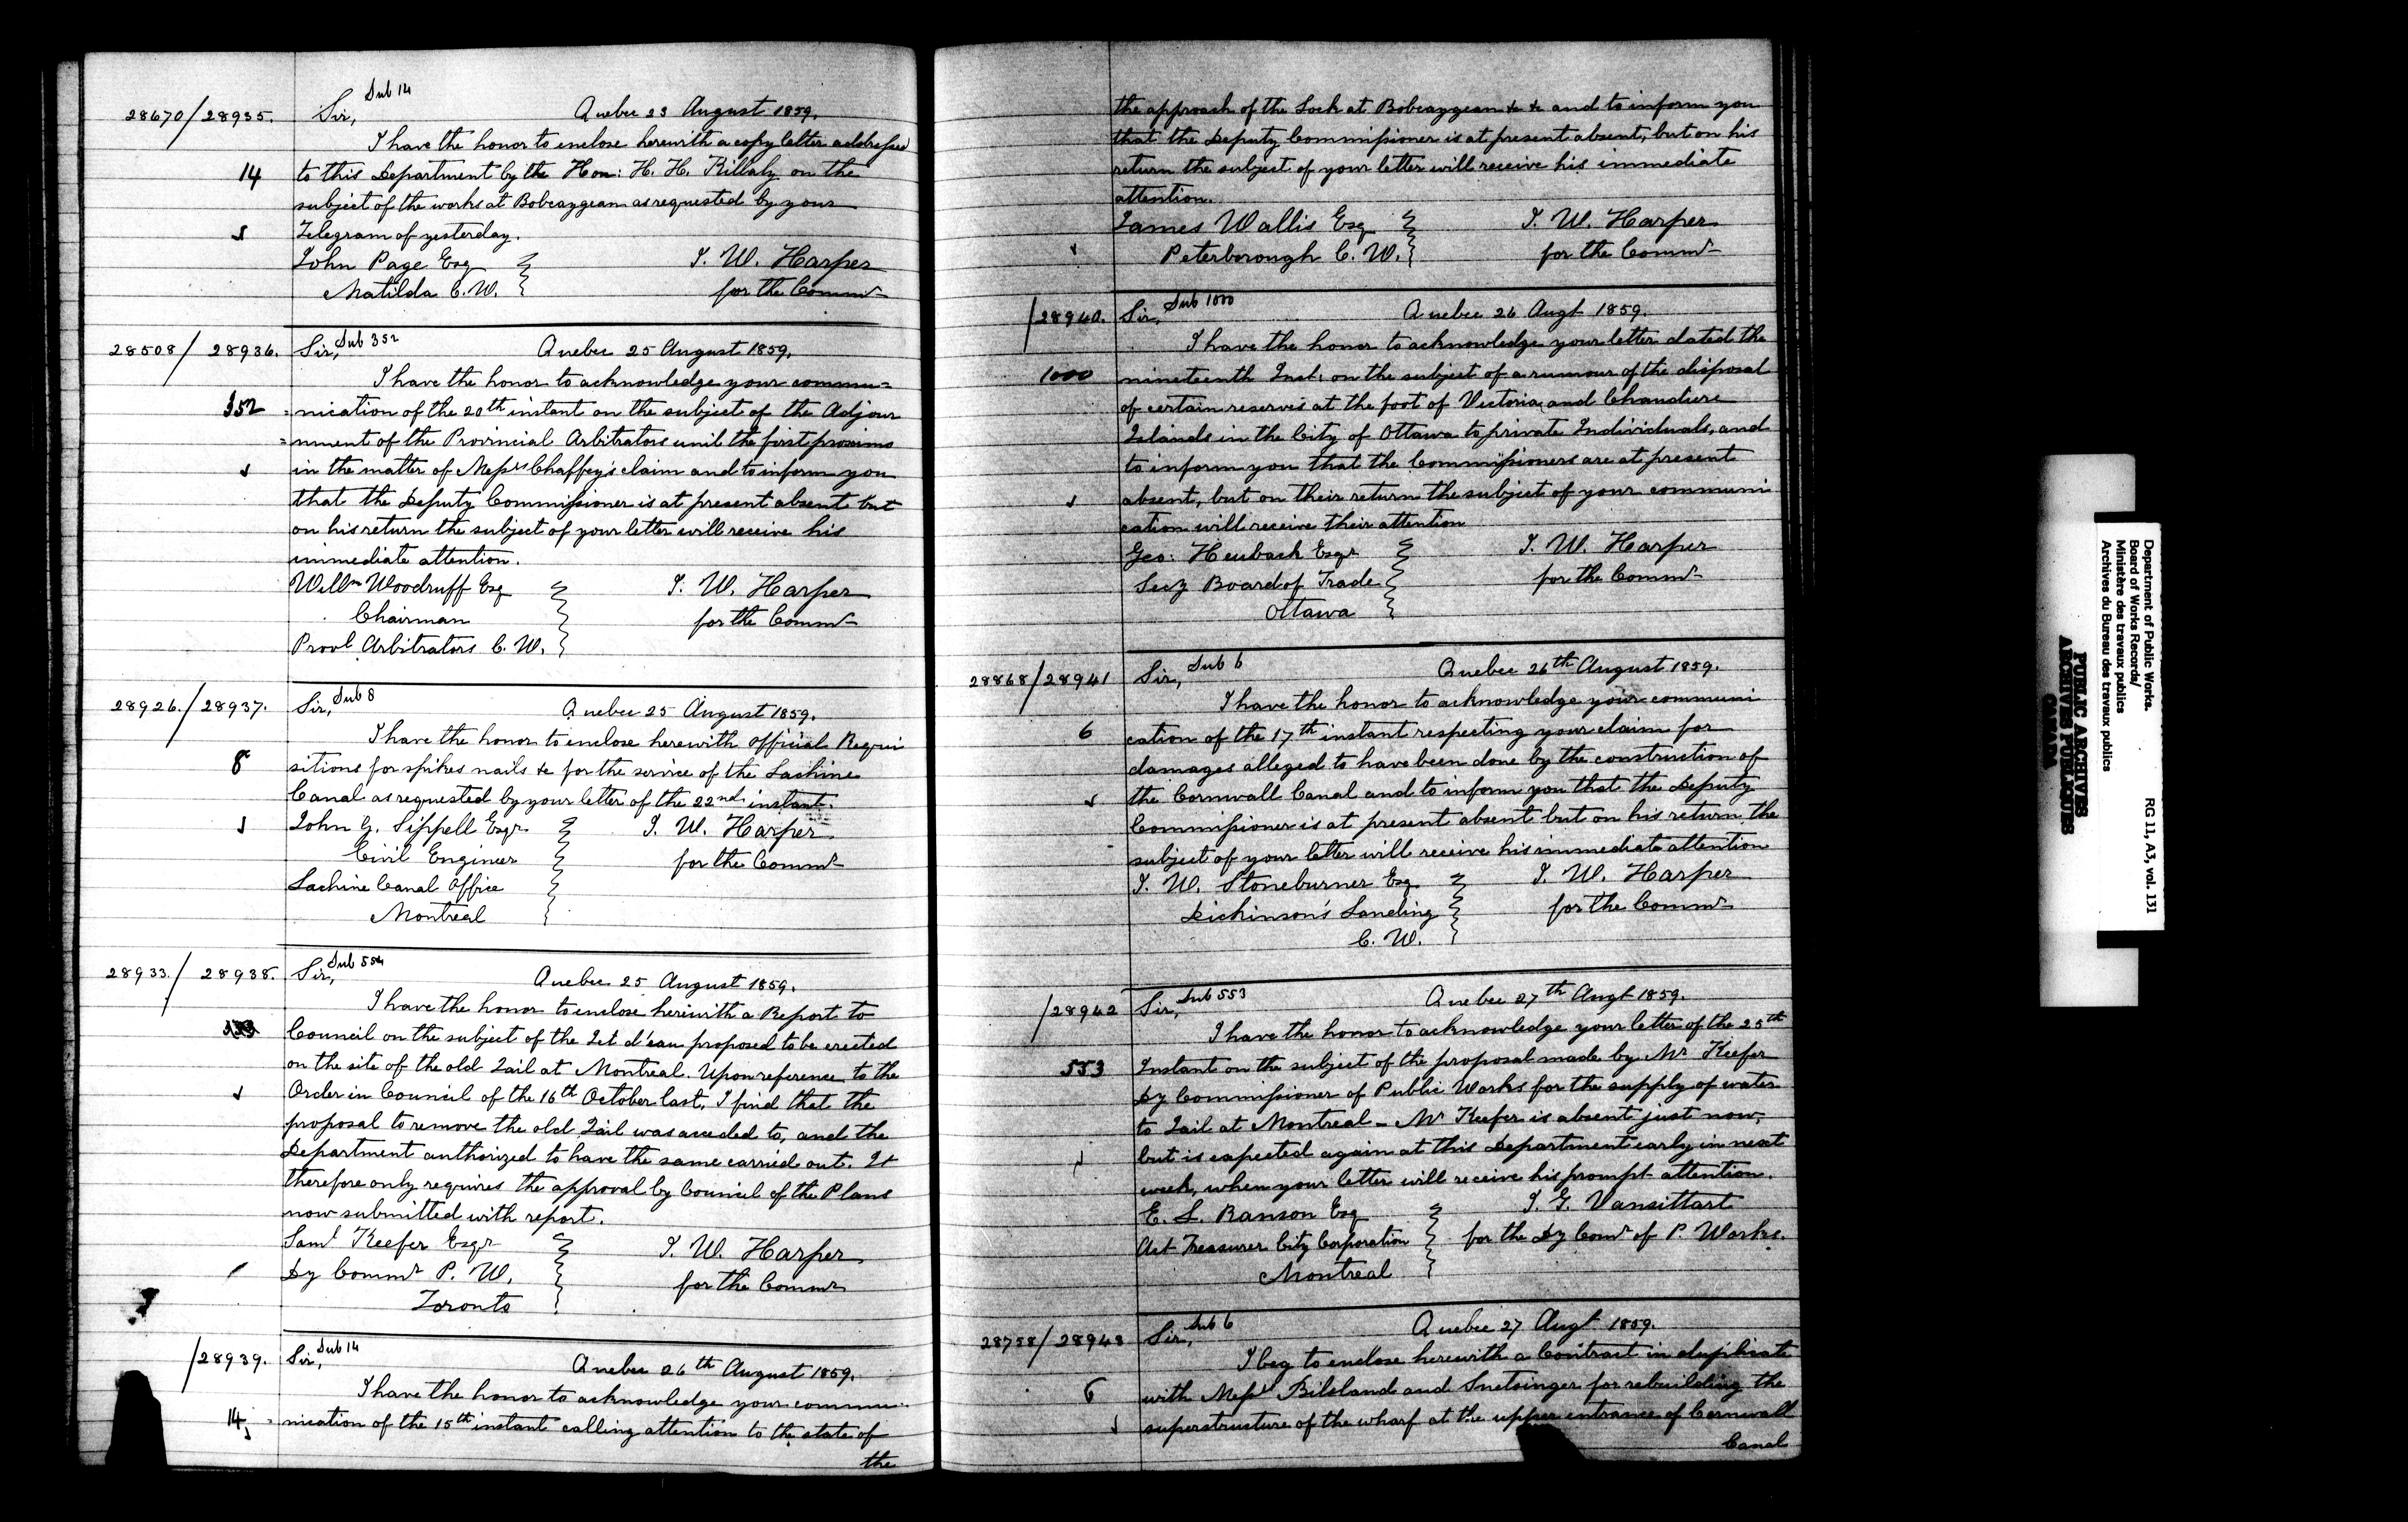 28670/28935. Sir, Sub 14 Quebec 23 August 1859.
I have the honor to enclose herewith a copy letter addressed
14 to this Department by the Hon: H. H. Killaly on the
subject of the works at Bobcaygean as requested by your
Telegram of yesterday.
John Page Esq T. W. Harper
Matilda C. W. for the Commr
28508/28936. Sir, Sub 352 Quebec 25 August 1859.
I have the honor to acknowledge your commu=
352 =nication of the 20th instant on the subject of the Adjour
=nment of the Provincial Arbitrators until the first proximo
in the matter of Messrs Chaffey's claim and to inform you
that the Deputy Commissioner is at present absent but
on his return the subject of your letter will receive his
immediate attention.
Willm Woodruff Esq T. W. Harper
Chairman for the Commr
Provl Arbitrators C. W.
28926./28937. Sir, Sub 8 Quebec 25 August 1859.
I have the honor to enclose herewith official Requi
8 sitions for spikes nails &c for the service of the Lachine
Canal as requested by your letter of the 22nd instant.
John G. Sippell Esqr T. W. Harper
Civil Engineer for the Commr
Lachine Canal Office
Montreal
28933./28938. Sir, Sub 554 Quebec 25 August 1859.
I have the honor to enclose herewith a Report to
Council on the subject of the Jet d'eau proposed to be erected
on the site of the old Jail at Montreal. Upon reference to the
Order in Council of the 16th October last, I find that the
proposal to remove the old Jail was acceded to, and the
Department authorized to have the same carried out. It
therefore only requires the approval by Council of the Plans
now submitted with report.
Saml Keefer Esqr T. W. Harper
Dy Commr P. W. for the Commr
Toronto
/28939. Sir, Sub 14 Quebec 26th August 1859.
I have the honor to acknowledge your commu
14 =nication of the 15th instant calling attention to the state of
the
the approach of the Lock at Bobcaygean &c &c and to inform you
that the Deputy Commissioner is at present absent, but on his
return the subject of your letter will receive his immediate
attention.
James Wallis Esq T. W. Harper
Peterborough C. W. for the Commr
/28940. Sir, Sub 1000 Quebec 26 Augt 1859.
I have the honor to acknowledge your letter dated the
1000 nineteenth Inst: on the subject of a rumour of the disposal
of certain reserves at the foot of Victoria and Chaudiere
Islands in the City of Ottawa to private Individuals, and
to inform you that the Commissioners are at present
absent, but on their return the subject of your communi
cation will receive their attention
Geo: Heubach Esqr T. W. Harper
Secy Board of Trade for the Commr
Ottawa
28868/28941 Sir, Sub 6 Quebec 26th August 1859.
I have the honor to acknowledge your communi
6 cation of the 17th instant respecting your claim for
damages alleged to have been done by the construction of
the Cornwall Canal and to inform you that the Deputy
Commissioner is at present absent but on his return the
subject of your letter will receive his immediate attention
T. W. Stoneburner Esq T. W. Harper
Dickinson's Landing for the Commr
C. W.
/28942 Sir, Sub 553 Quebec 27th Augt 1859.
I have the honor to acknowledge your letter of the 25th
553 Instant on the subject of the proposal made by Mr Keefer
Dy Commissioner of Public Works for the supply of water
to Jail at Montreal – Mr Keefer is absent just now,
but is expected again at this Department early in next
week, when your letter will receive his prompt attention.
E. L. Ranson Esq T. G. Vansittart
Act Treasurer City Corporation for the Dy Comr of P. Works.
Montreal
28758/28943 Sir, Sub 6 Quebec 27 Augt 1859.
I beg to enclose herewith a Contract in duplicate
6 with Messrs Bilsland and Snetsinger for rebuilding the
superstructure of the wharf at the upper entrance of Cornwall
Canal
Department of Public Works.
Board of Works Records/
Ministère des travaux publics
Archives du Bureau des travaux publics
RG 11, A3, vol. 131
PUBLIC ARCHIVES
ARCHIVES PUBLIQUES
CANADA